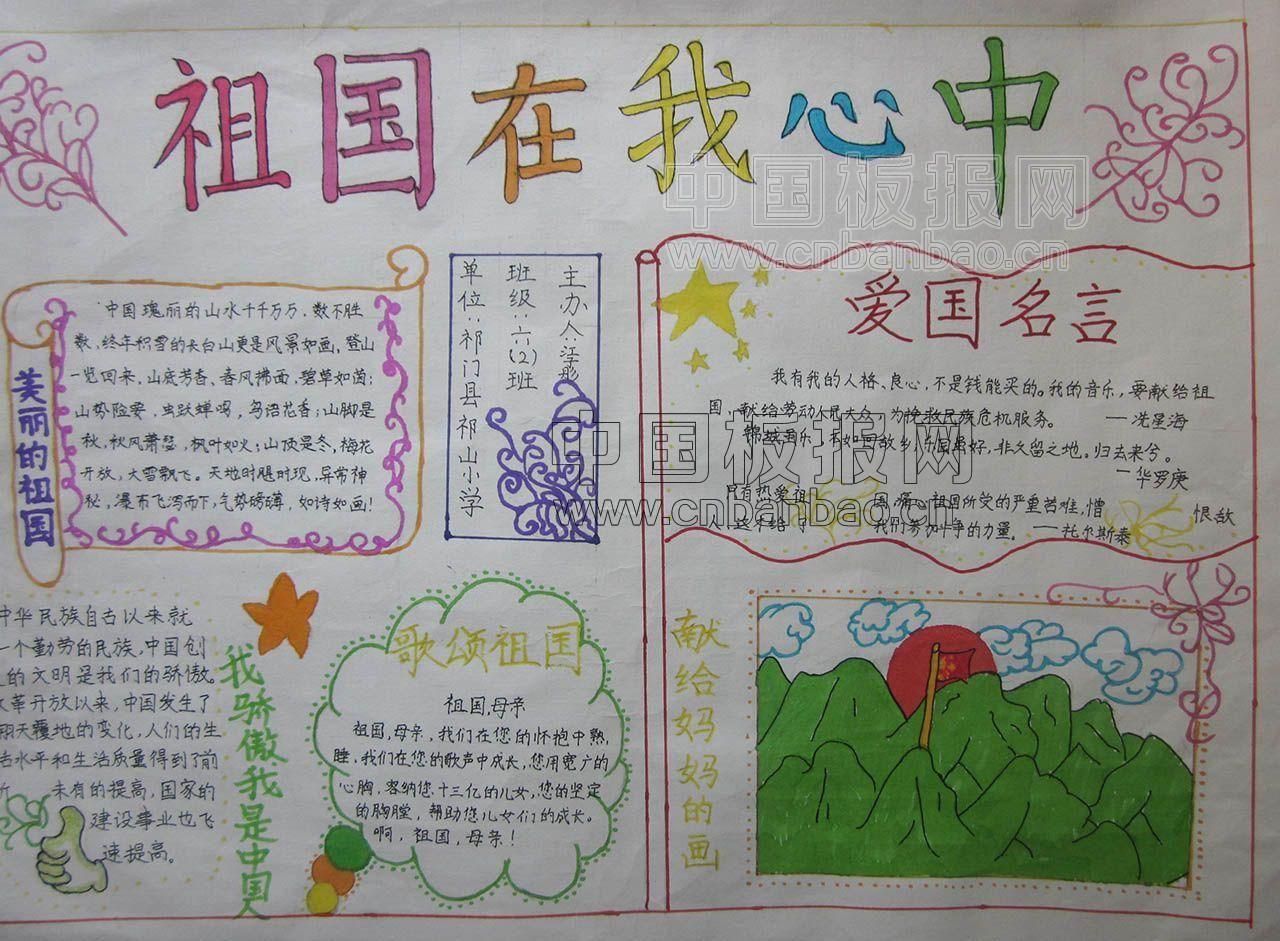 祖国在我心中
中国板报网
www.cnbanbao.cn
美丽的祖国
中国瑰丽的山水千千万万，数不胜
数，终年积雪的长白山更是风景如画，登山
一览回来，山底芳香、春风拂面，碧草如茵；
山势险要，虫跃蝉鸣，鸟语花香；山脚是
秋，秋风萧瑟，枫叶如火；山顶是冬，梅花
开放，大雪飘飞。天地时隐时现，异常神
秘，瀑布飞泻而下，气势磅礴，如诗如画！
主办人：江彤
班级：六（2）班
单位：祁门县祁山小学
爱国名言
我有我的人格、良心，不是钱能买的。我的音乐，要献给祖
国，献给劳动人民大众，为挽救民族危机服务。
—冼星海
锦城虽乐，不如回故乡；乐园虽好，非久留之地。归去来兮。
—华罗庚
只有热爱祖
国，痛心祖国所受的严重苦难，憎
恨敌
人，这才给了
我们参加斗争的力量。
—托尔斯泰
中国板报网
www.cnbanbao.cn
中华民族自古以来就
一个勤劳的民族，中国创
的文明是我们的骄傲。
改革开放以来，中国发生了
翻天覆地的变化，人们的生
活水平和生活质量得到了前
所 未有的提高，国家的
建设事业也飞
速提高。
我骄傲我是中国人
歌颂祖国
祖国，母亲
祖国，母亲，我们在您的怀抱中熟
睡，我们在您的歌声中成长，您用宽广的
心胸，容纳您十三亿的儿女，您的坚定
的胸膛，帮助您儿女们的成长。
啊，祖国，母亲！
献给妈妈的画
中国板报网
www.cnbanbao.cn